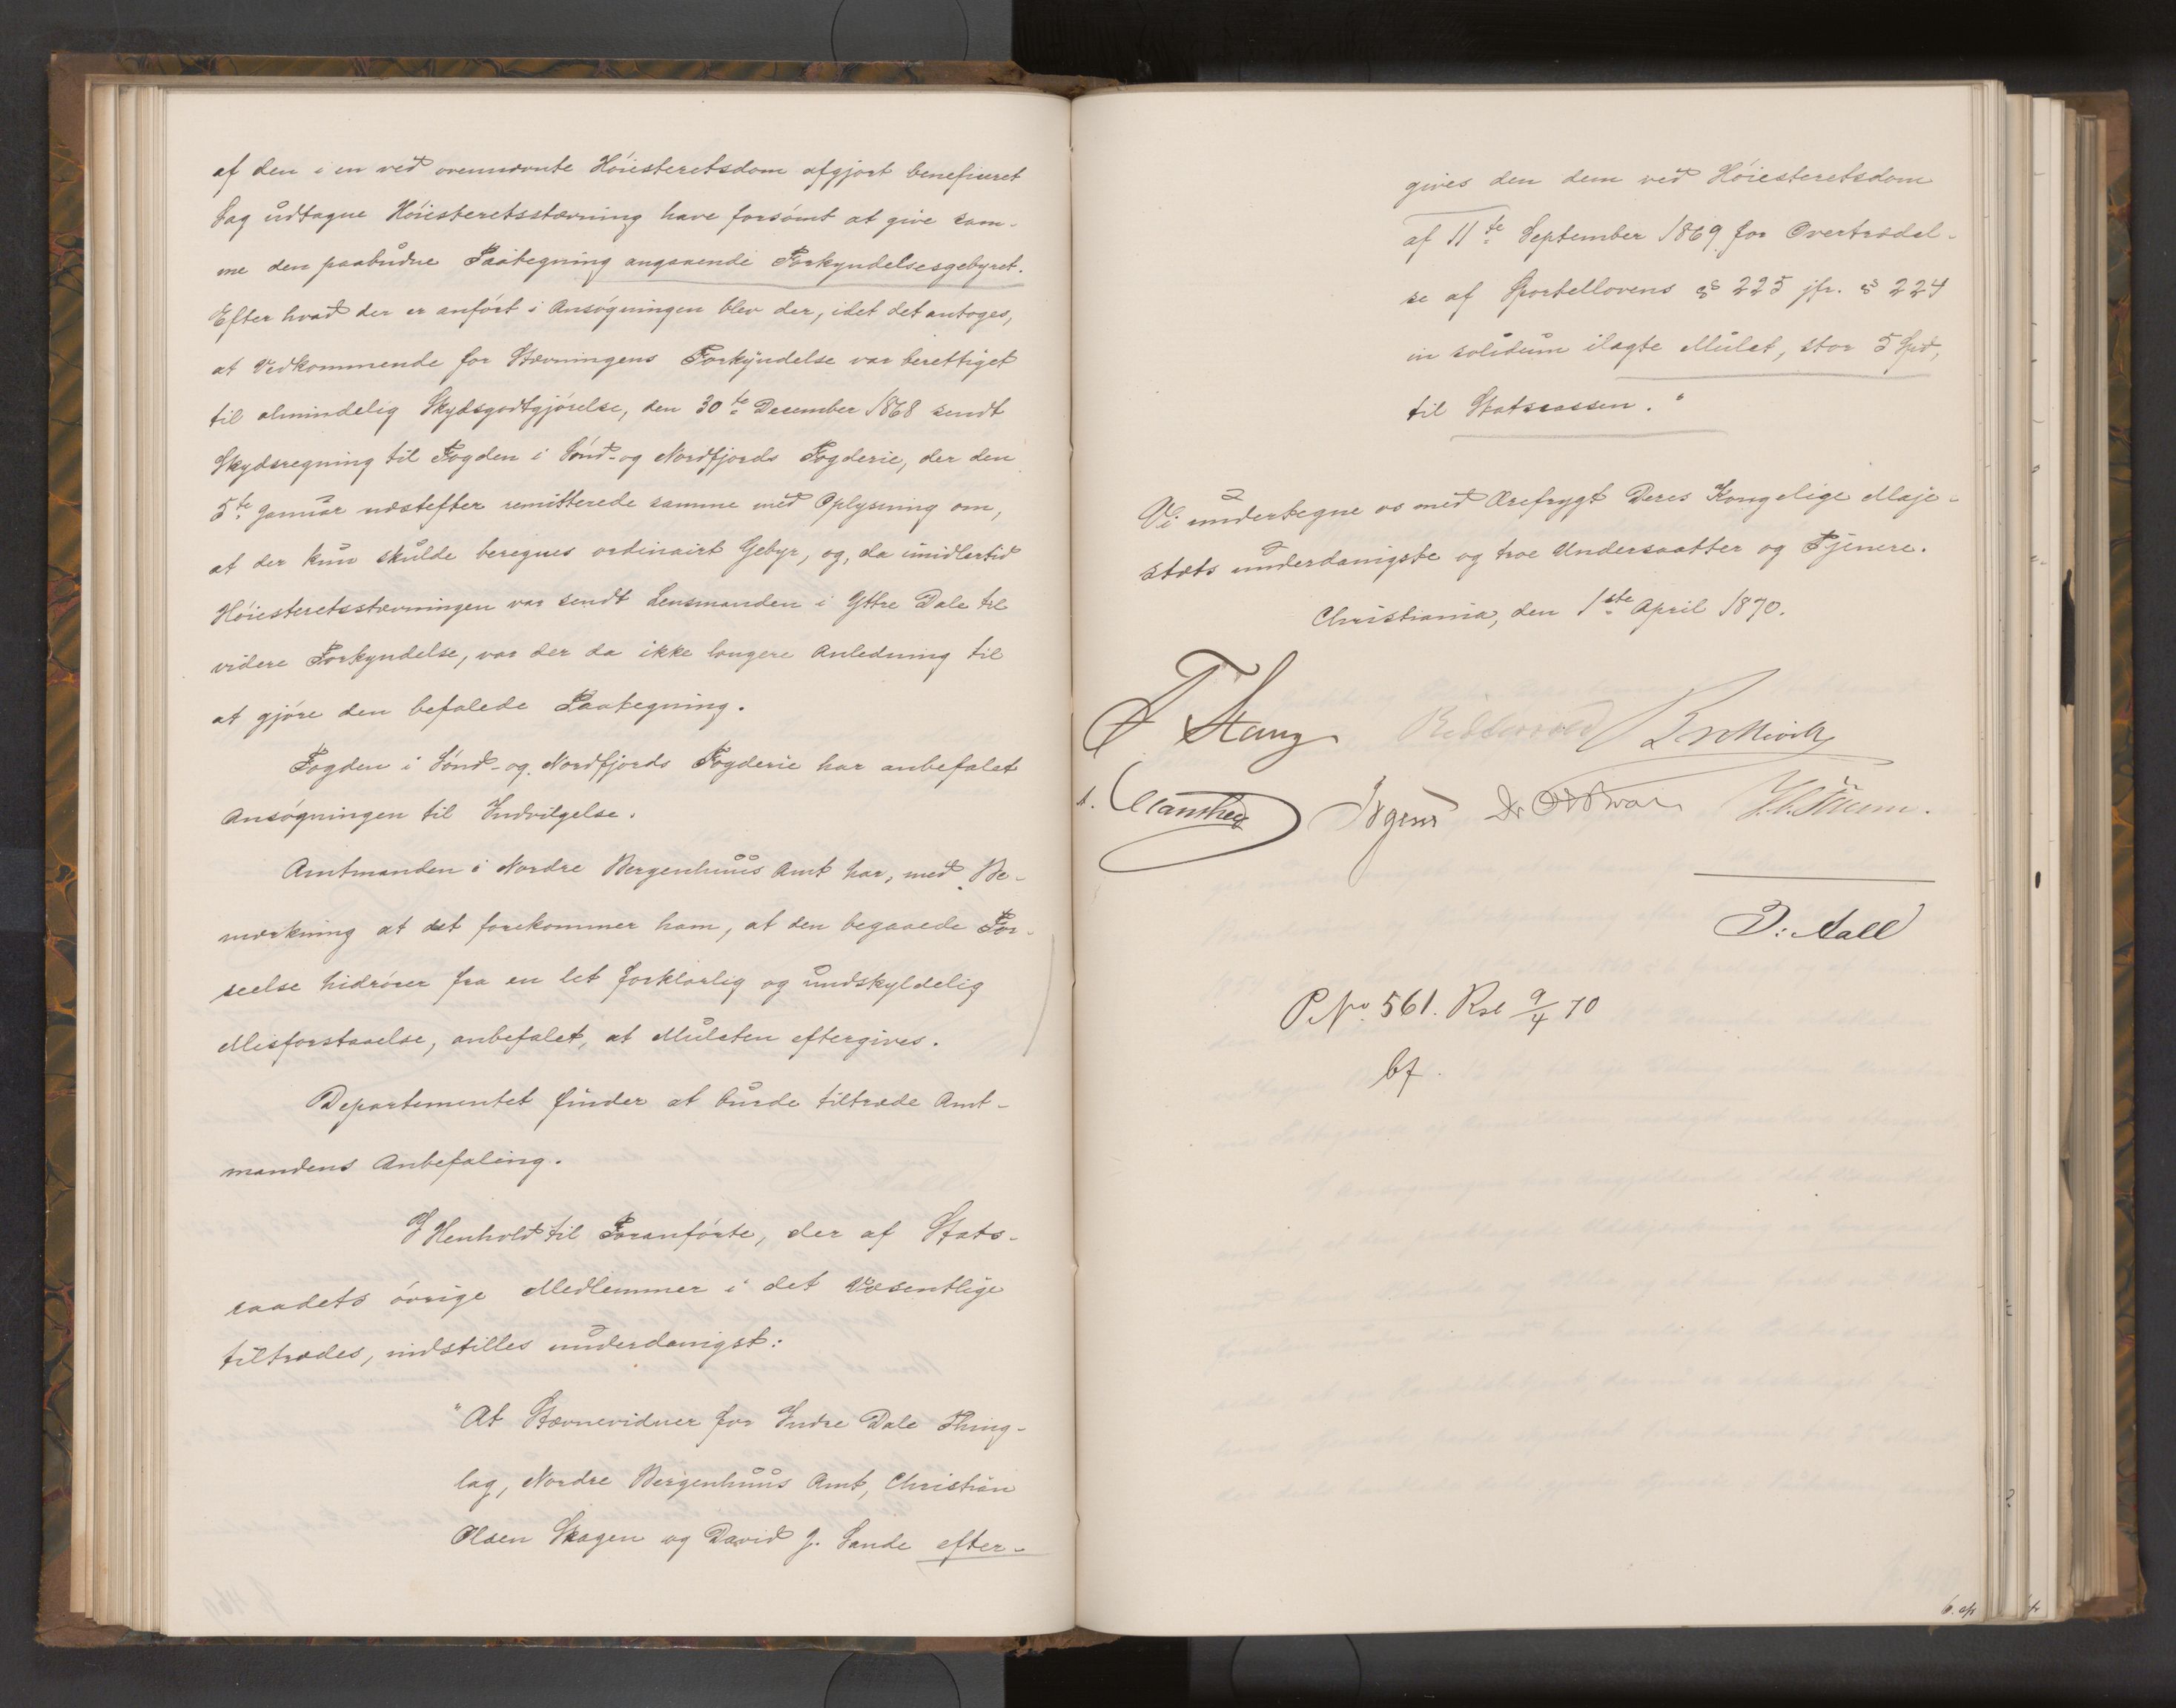 af den i en ved ovennævnte Höiesteretsdom afgjort beneficeret
Sag udtagne Höiesteretsstævning have forsömt at give sam-
me den paabudne Paategning angaaende Forkyndelsesgebyret.
Efter hvad der er anfört i Ansögningen blev der, idet det antoges,
at Vedkommende for Stævningens Forkyndelse var berettiget
til almindelig Skydsgodtgjörelse, den 30te December 1868 sendt
Skydsregning til Fogden i Sönd- og Nordfjords Fogderie, der den
5te Januar næstefter remitterede samme med Oplysning om,
at der kun skulde beregnes ordinairt Gebyr, og, da imidlertid
Höiesteretsstævningen var sendt Lensmanden i Yttre Dale til
videre Forkyndelse, var der da ikke længere Anledning til
at gjöre den befalede Paategning.
Fogden i Sönd- og Nordfjords Fogderie har anbefalet
Ansögningen til Indvilgelse.
Amtmanden i Nordre Bergenhuus Amt har, med Be-
mærkning at det forekommer ham, at den begaaede For-
seelse hidrörer fra en let forklarlig og undskyldelig
Misforstaaelse, anbefalet, at Mulcten eftergives.
Departementet finder at burde tiltræde Amt-
mandens Anbefaling.
I Henhold til Foranförte, der af Stats-
raadets övrige Medlemmer i det Væsentlige
tiltrædes, indstilles underdanigst:
"At Stævnevidner for Indre Dale Thing-
lag, Nordre Bergenhuus Amt, Christian
Olsen Skagen og David J. Sande efter-
gives den dem ved Höiesteretsdom
af 11te September 1869 for Overtrædel-
se af Sportellovens § 225 jfr. § 224
in solidum ilagte Mulct, stor 5 Spd,
til Statscassen."
Vi undertegne os med Ærefrygt Deres Kongelige Maje-
stæts underdanigste og troe Undersaatter og Tjenere.
Christiania, den 1ste April 1870.
F Stang Riddervold
Irgens
D: Aall
P. No. 561. Rsl 9/4 70
bf.